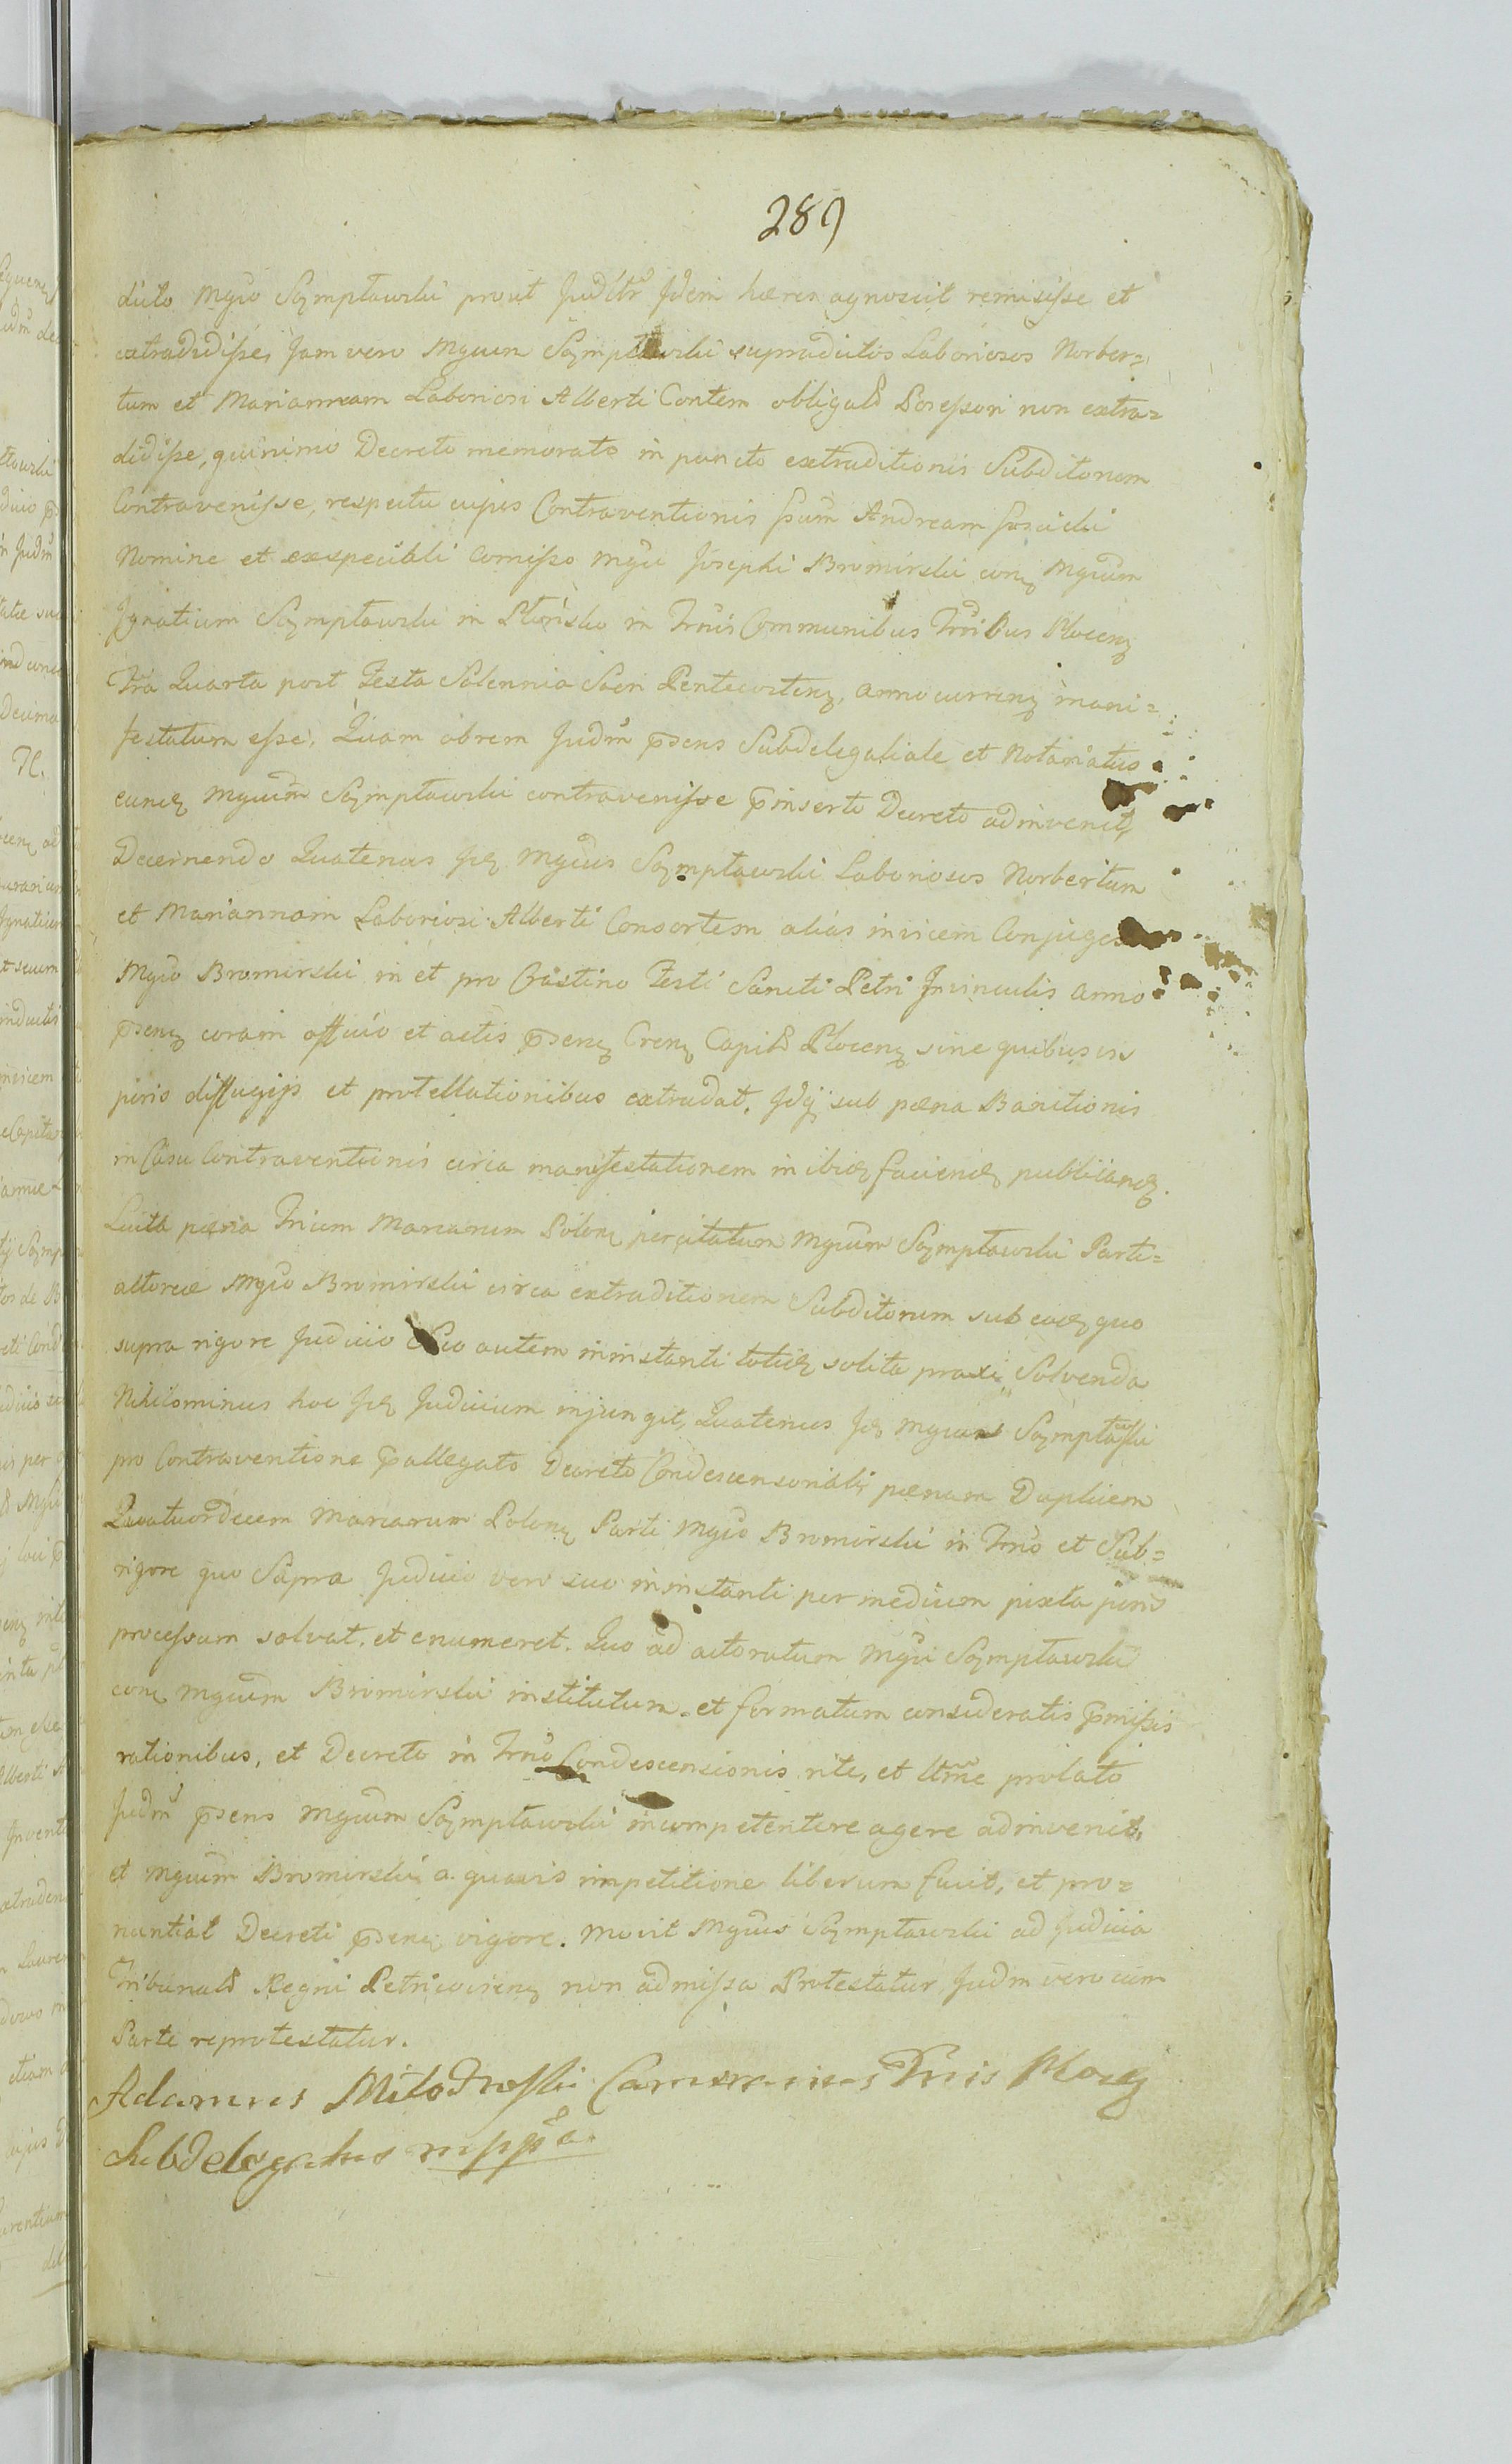 289
dicto Mgco Szymptawski prout Juditr Idem haeres agnoscit remisisse et
extradidisse, Jam vero Mgcum Szymptawski supradictos Laboriosos Norber=
tum et Mariannam Laboriosi Alberti Contem obligats Possessori non extra=
didisse, quinimo Decreto memorato in puncto extraditionis Subditorum
Contravenisse, respectu cujus Contraventionis Andream
Nomine et ex speciali comisso Mgci Josephi Bromirski conq Mgcum
Ignatium Szymptawski in Płońsko in Trnis Communibus Trribus Plocenq
Fria Quarta post Festa Solennia Sacri Pentecostenq, anno currenq mani=
festatum esse, Quam obrem Judm psens Subdelegatiale et Notariatus
eundq Mgcum Szymptawski contravenisse pinserto Decreto adinvenit,
Decernendo Quatenus Idq Mgcus Szymptawski Laboriosos Norbertum
et Mariannam Laboriosi Alberti Consortem alias invicem Conjuges
Mgco Bromirski in et pro Crastino Festi Sancti Petri Invinculis anno
psenq coram officio et actis psenq Crenq Capits Plocenq sine quibusvis
juris diffugijs et protellationibus extradat, Idq sub paena Banitionis
in Casu Contraventionis circa manifestationem in ibidq faciendq publicandq.
Luita paena Trium Marcarum Polonq per citatum Mgcum Szymptawski Parti=
actoreae Mgco Bromirski circa extraditionem Subditorum sub eodq quo
supra rigore Judicio suo autem in instanti totidq solita praxi Solvenda
Nihilominus hoc Idq Judicium injungit, Quatenus Idq Mgcus Szymptawski
pro Contraventione pallegato Decreto Condescensoriali, paenam Duplicem
Quatuordecem Marcarum Polonq Parti Mgco Bromirski in Trno et Sub=
rigore quo Supra Judicio vero suo in instanti per medium juxta juris
processum solvat, et enumeret. Quo ad actoratum Mgci Szymptawski
conq Mgcum Bromirski institutum et formatum consideratis pmissis
rationibus, et Decreto in Trno Condescensionis rite, et ltme prolato
Judm psens Mgcum Szymptawski incompetentere agere adinvenit,
et Mgcum Bromirski a quavis impetitione liberum facit, et pro=
nuntiat Decreti psenq vigore. Movit Mgcus Szymptawski ad Judicia
Tribunals Regni Petricovienq non admissa Protestatur Judm vero cum
Parte reprotestatur.
Adamus Miłodroski Camerarius Trris Plocq
Subdelegatus mppa